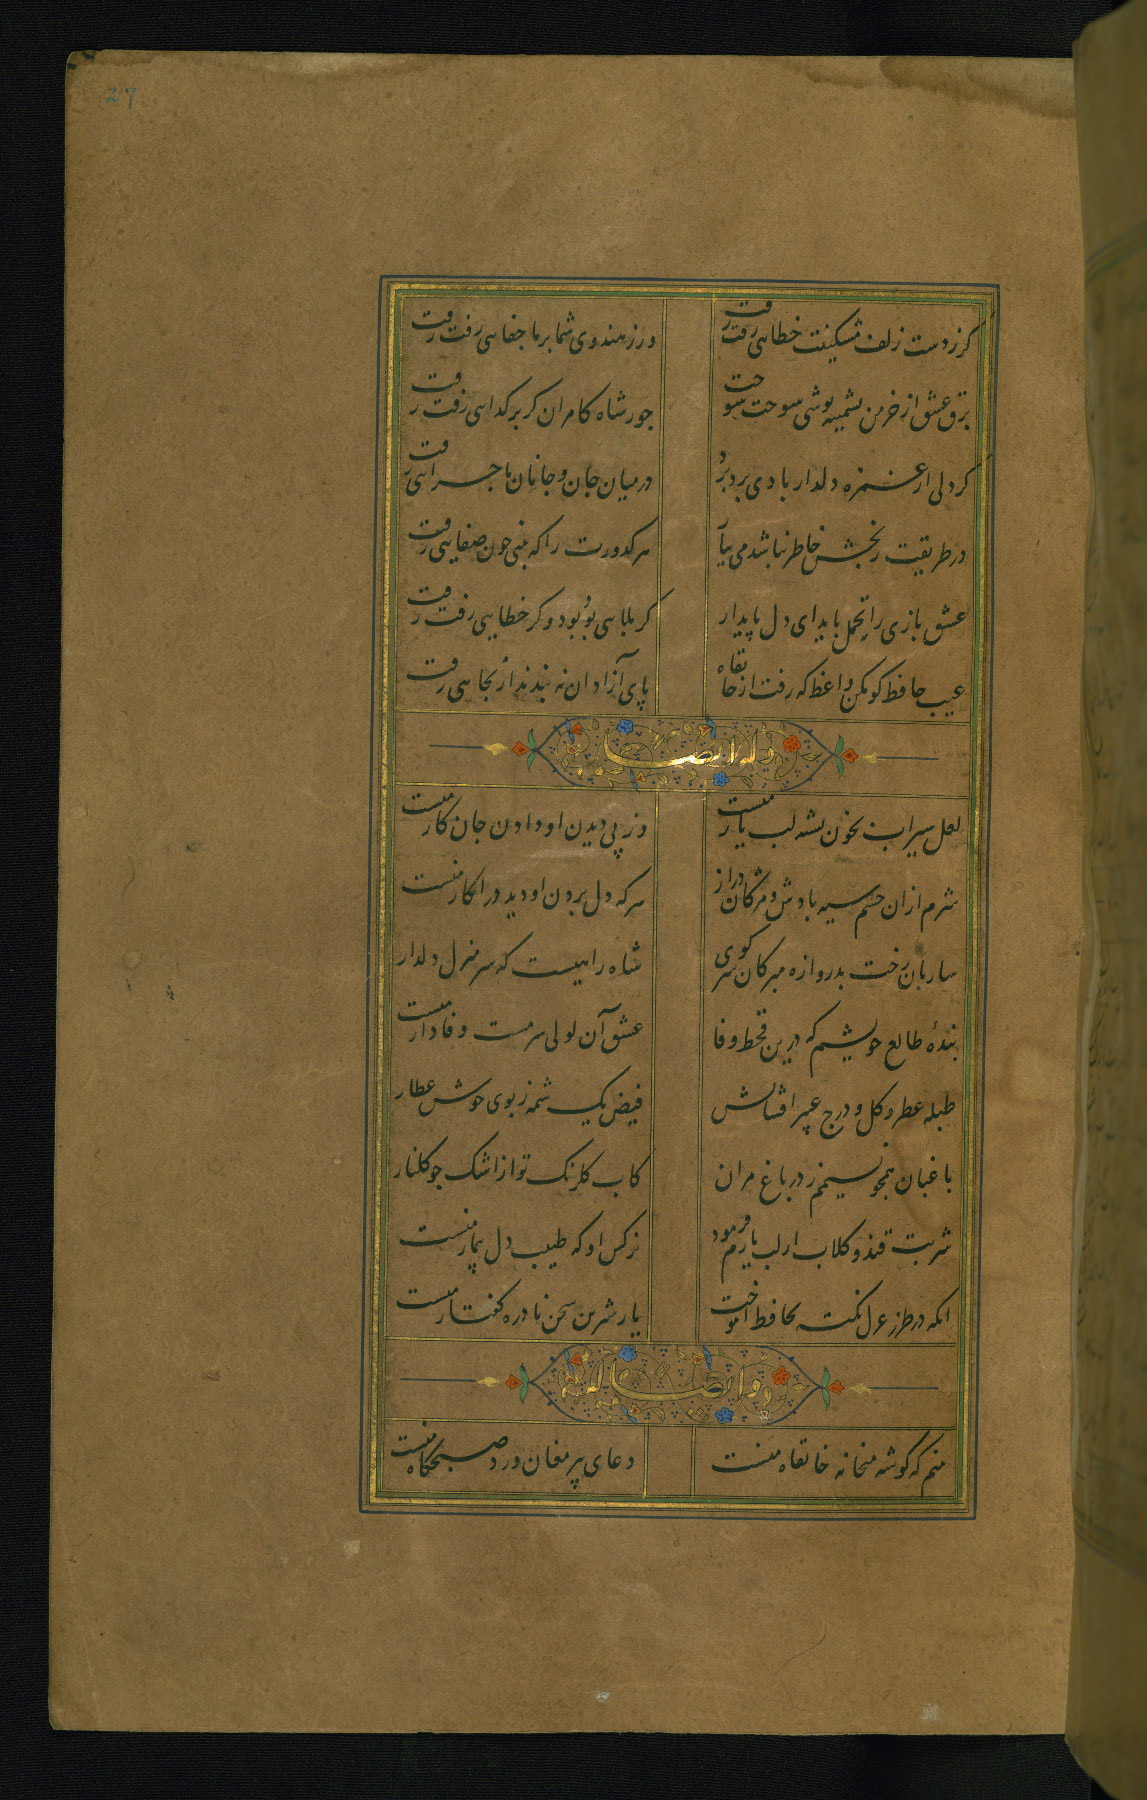 27
کرزدست زلف مشکینت خطایی رفت رفت
ورزهندوی شما برما جفایی رفت رفت
برق عشق ازخرمن پشمینه پوشی سوخت سوخت
جورشاه کامران کر برکدایی رفت رفت
کردلی ازغمزه دلدار باری برد برد
درمیان جان و جانان ماجرایی رفت
درطریقت رنجش خاطر نباشد می بیار
هرکدورت را که بینی چون صفایی رفت
عشق بازی را تحمل باید ای دل پایدار
کر بلایی بود بود و کر خطایی رفت رفت
عیب حافظ کو مکن واعظ که رفت از خانقاه
پای آزادان نه بندند ار بجایی رفت
وله ایضا
لعل سیراب بخون تشنه لب یار منست
وز پی دیدن او دادن جان کار منست
شرم ازان چشم سیه بادش و مژکان دراز
هرکه دل بردن او دید در انکار منست
ساربان رخت بدروازه مبر کان سر کوی
شاه راهیست که سرمنزل دلدار
بندهٔ طالع خویشم که درین قحط وفا
عشق آن لولی سرمست وفادار منست
طبله عطر کل و درج عبیر افشانش
فیض یک شمه ز بوی خوش عطار
باغبان همچو نسیمم ز در باغ مران
کاب کلزار تو از اشک چو کلنار
شربت قند و کلاب از لب یارم فرمود
نرکس او که طبیب دل بیمار منست
انکه در طرز غزل نکته بحافظ آموخت
یار شیرین سخن نادره کفتار منست
وله ایضا
منم که کوشه میخانه خانقاه منست
دعای پیر مغان ورد صبحکاه منست